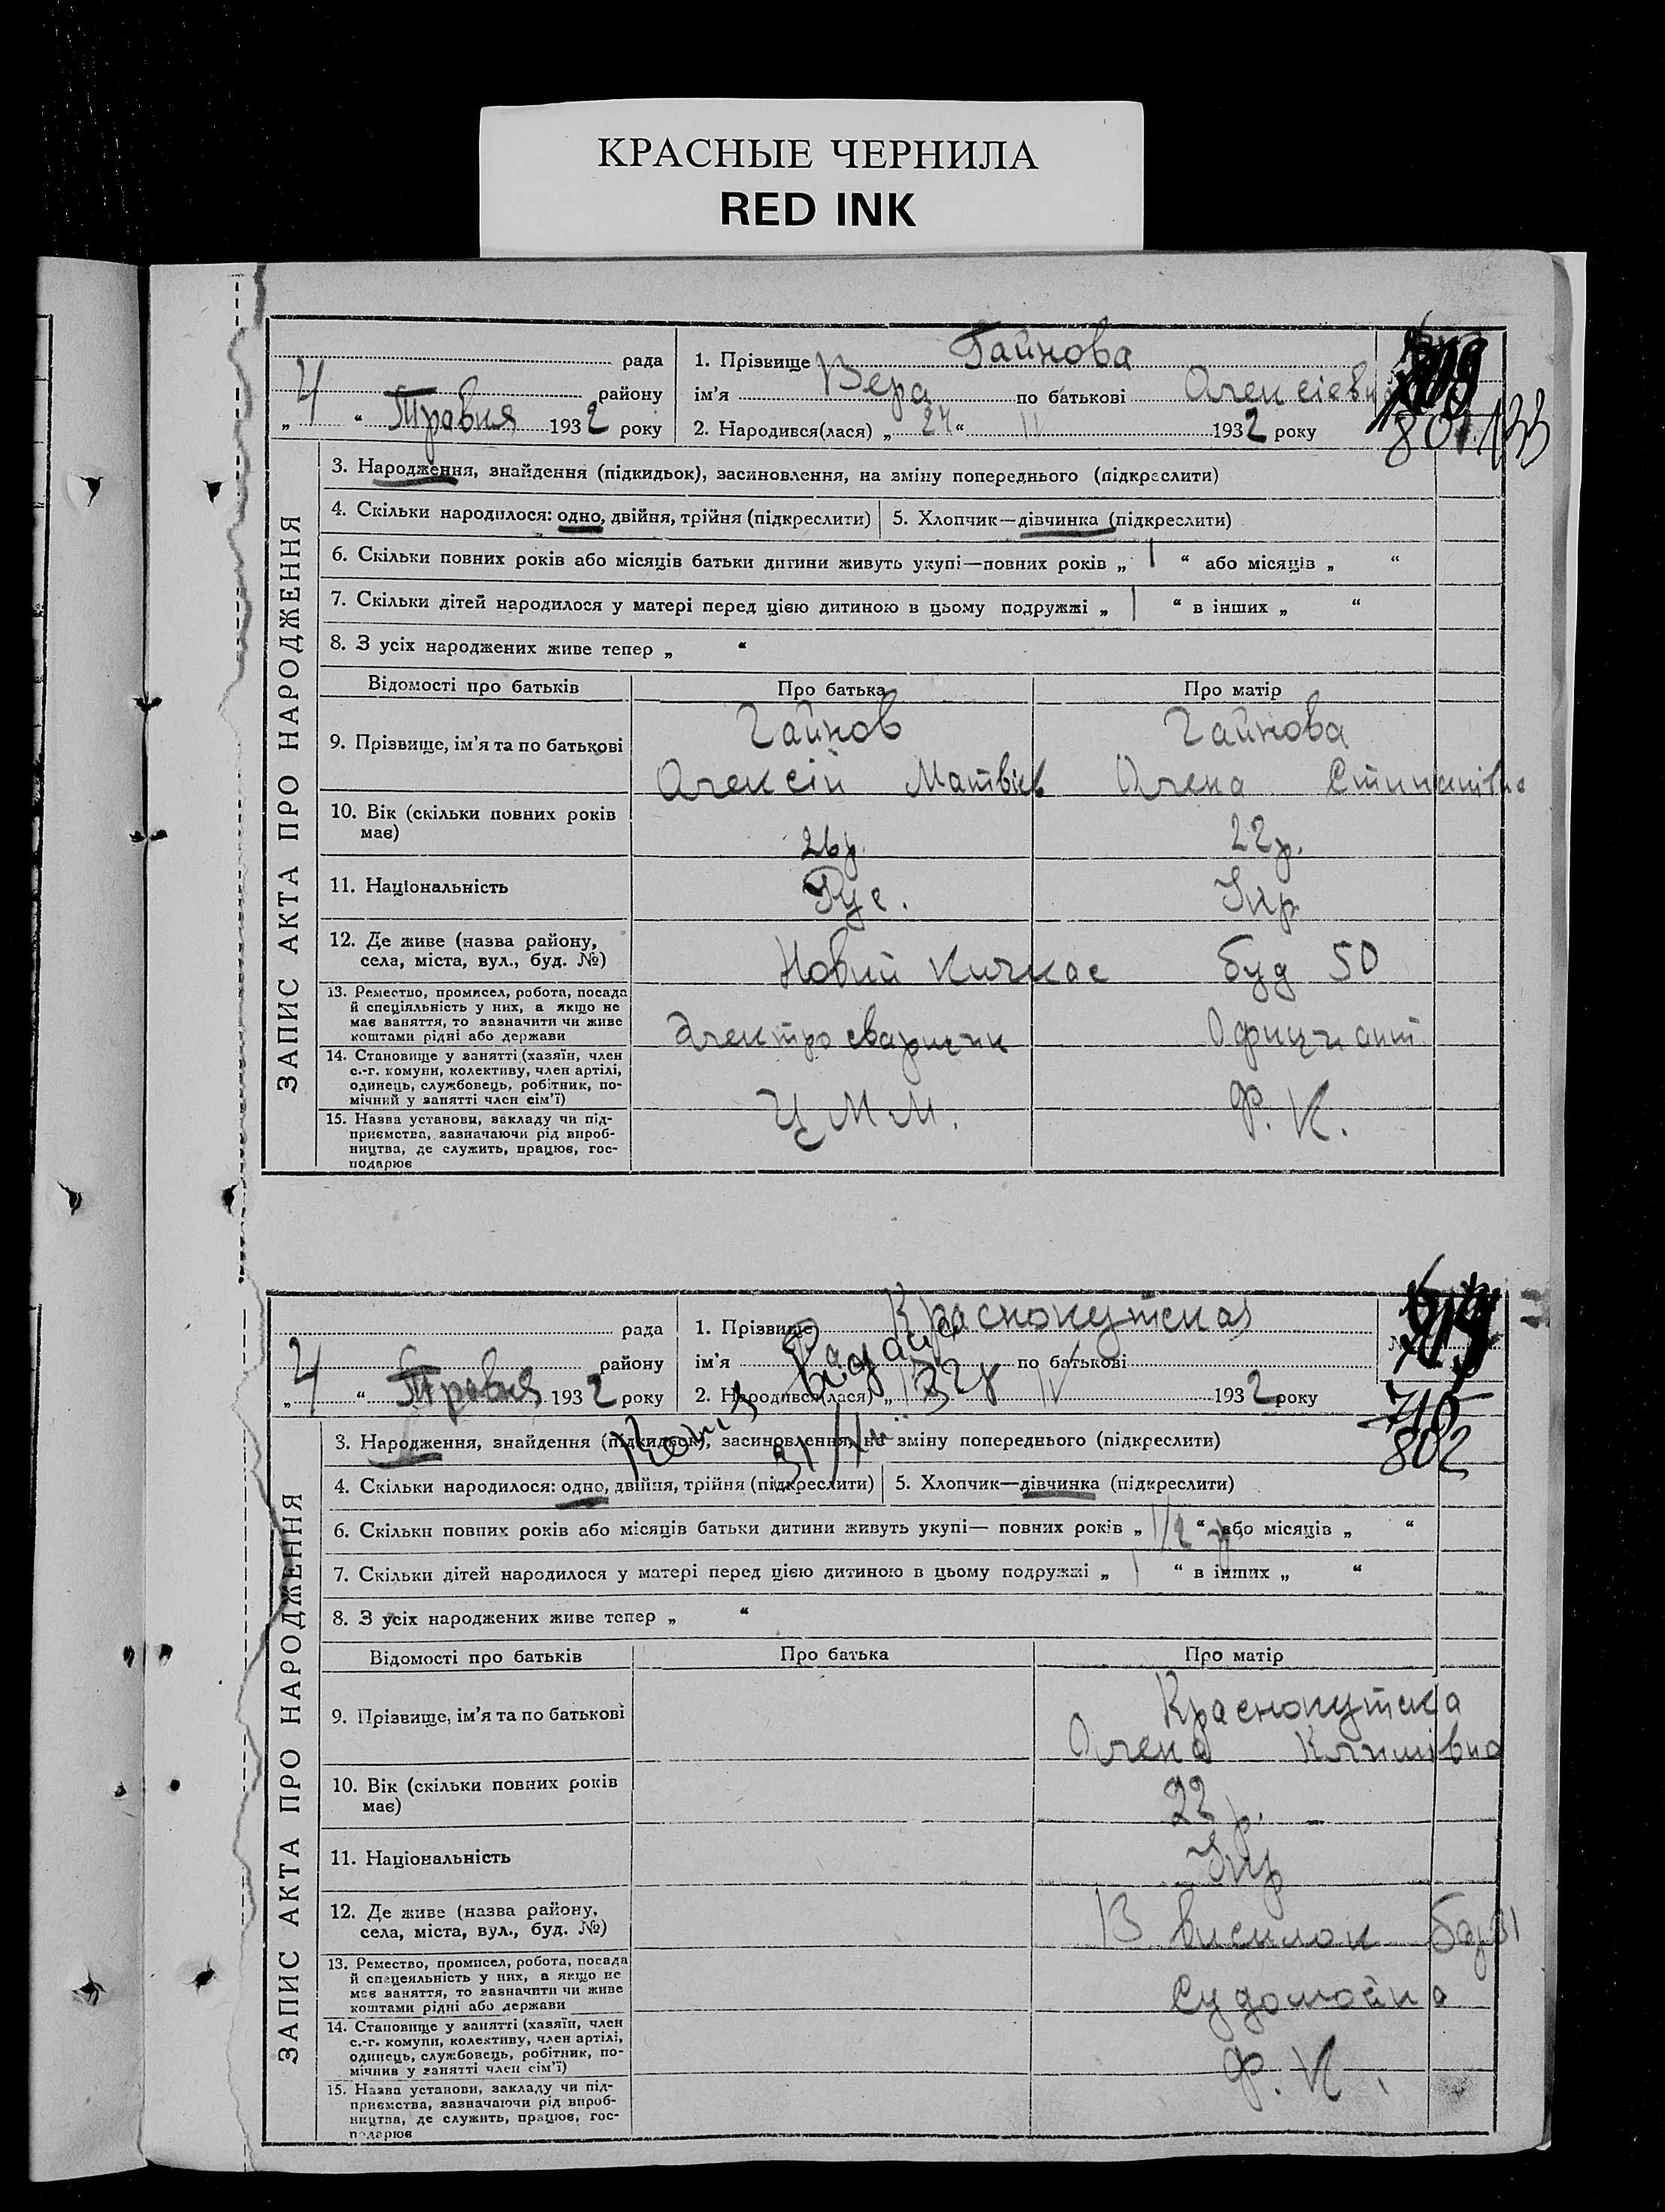 КРАСНЫЕ ЧЕРНИЛА
RED INK
ЗАПИС АКТА ПРО НАРОДЖЕННЯ
рада
району
„ 4 “ Травня 1932 року
1. Прізвище Гайнова
ім'я Вера по батькові Олексієвна
2. Народився(лася) „ 24 “ IV 1932 року
801 133
3. Народження, знайдення (підкидьок), засиновлення, на зміну попереднього (підкреслити)
4. Скільки народилося: одно, двійня, трійня (підкреслити) 5. Хлопчик—дівчинка (підкреслити)
6. Скільки повних років або місяців батьки дитини живуть укупі—повних років „ 1 “ або місяців „ “
7. Скільки дітей народилося у матері перед цією дитиною в цьому подружжі „ 1 “ в інших „ “
8. З усіх народжених живе тепер „ “
Відомості про батьків Про батька Про матір
9. Прізвище, ім'я та по батькові Гайнов Гайнова
Олексій Матвієв Олена
10. Вік (скільки повних років
має) 26р. 22р.
11. Національність Рус. Укр
12. Де живе (назва району,
села, міста, вул., буд. №) Новий Кичкас буд 50
13. Ремество, промисел, робота, посада
й спеціяльність у них, а якщо не
має заняття, то зазначити чи живе
коштами рідні або держави Электросварщик Официант
14. Становище у занятті (хазяїн, член
с.-г. комуни, колективу, член артілі,
одинець, службовець, робітник, по-
мічний у занятті член сім'ї)
15. Назва установи, закладу чи під-
приємства, зазначаючи рід вироб-
ництва, де служить, працює, гос-
подарює Ц М М. Ф. К.
ЗАПИС АКТА ПРО НАРОДЖЕННЯ
рада
району
„ 4 “ Травня 1932 року
1. Прізвище Краснокутская
ім'я по батькові
2. Народився(лася) „ “ IV 1932 року
715
802
3. Народження, знайдення (підкидьок), засиновлення, на зміну попереднього (підкреслити)
4. Скільки народилося: одно, двійня, трійня (підкреслити) 5. Хлопчик—дівчинка (підкреслити)
6. Скільки повних років або місяців батьки дитини живуть укупі— повних років „ 1/2 “ або місяців „ “
7. Скільки дітей народилося у матері перед цією дитиною в цьому подружжі „ 1 “ в інших „ “
8. З усіх народжених живе тепер „ “
Відомості про батьків Про батька Про матір
9. Прізвище, ім'я та по батькові Краснокутска
Олена Климівна
10. Вік (скільки повних років
має) 22 р.
11. Національність Укр
12. Де живе (назва району,
села, міста, вул., буд. №) В висилок буд 31
13. Ремество, промисел, робота, посада
й спецеяльність у них, а якщо не
має заняття, то зазначити чи живе
коштами рідні або держави Судомойка
14. Становище у занятті (хазяїн, член
с.-г. комуни, колективу, член артілі,
одинець, службовець, робітник, по-
мічнив у занятті член сім'ї) Ф. К.
15. Назва установи, закладу чи під-
приємства, зазначаючи рід вироб-
ництва, де служить, працює, гос-
подарює